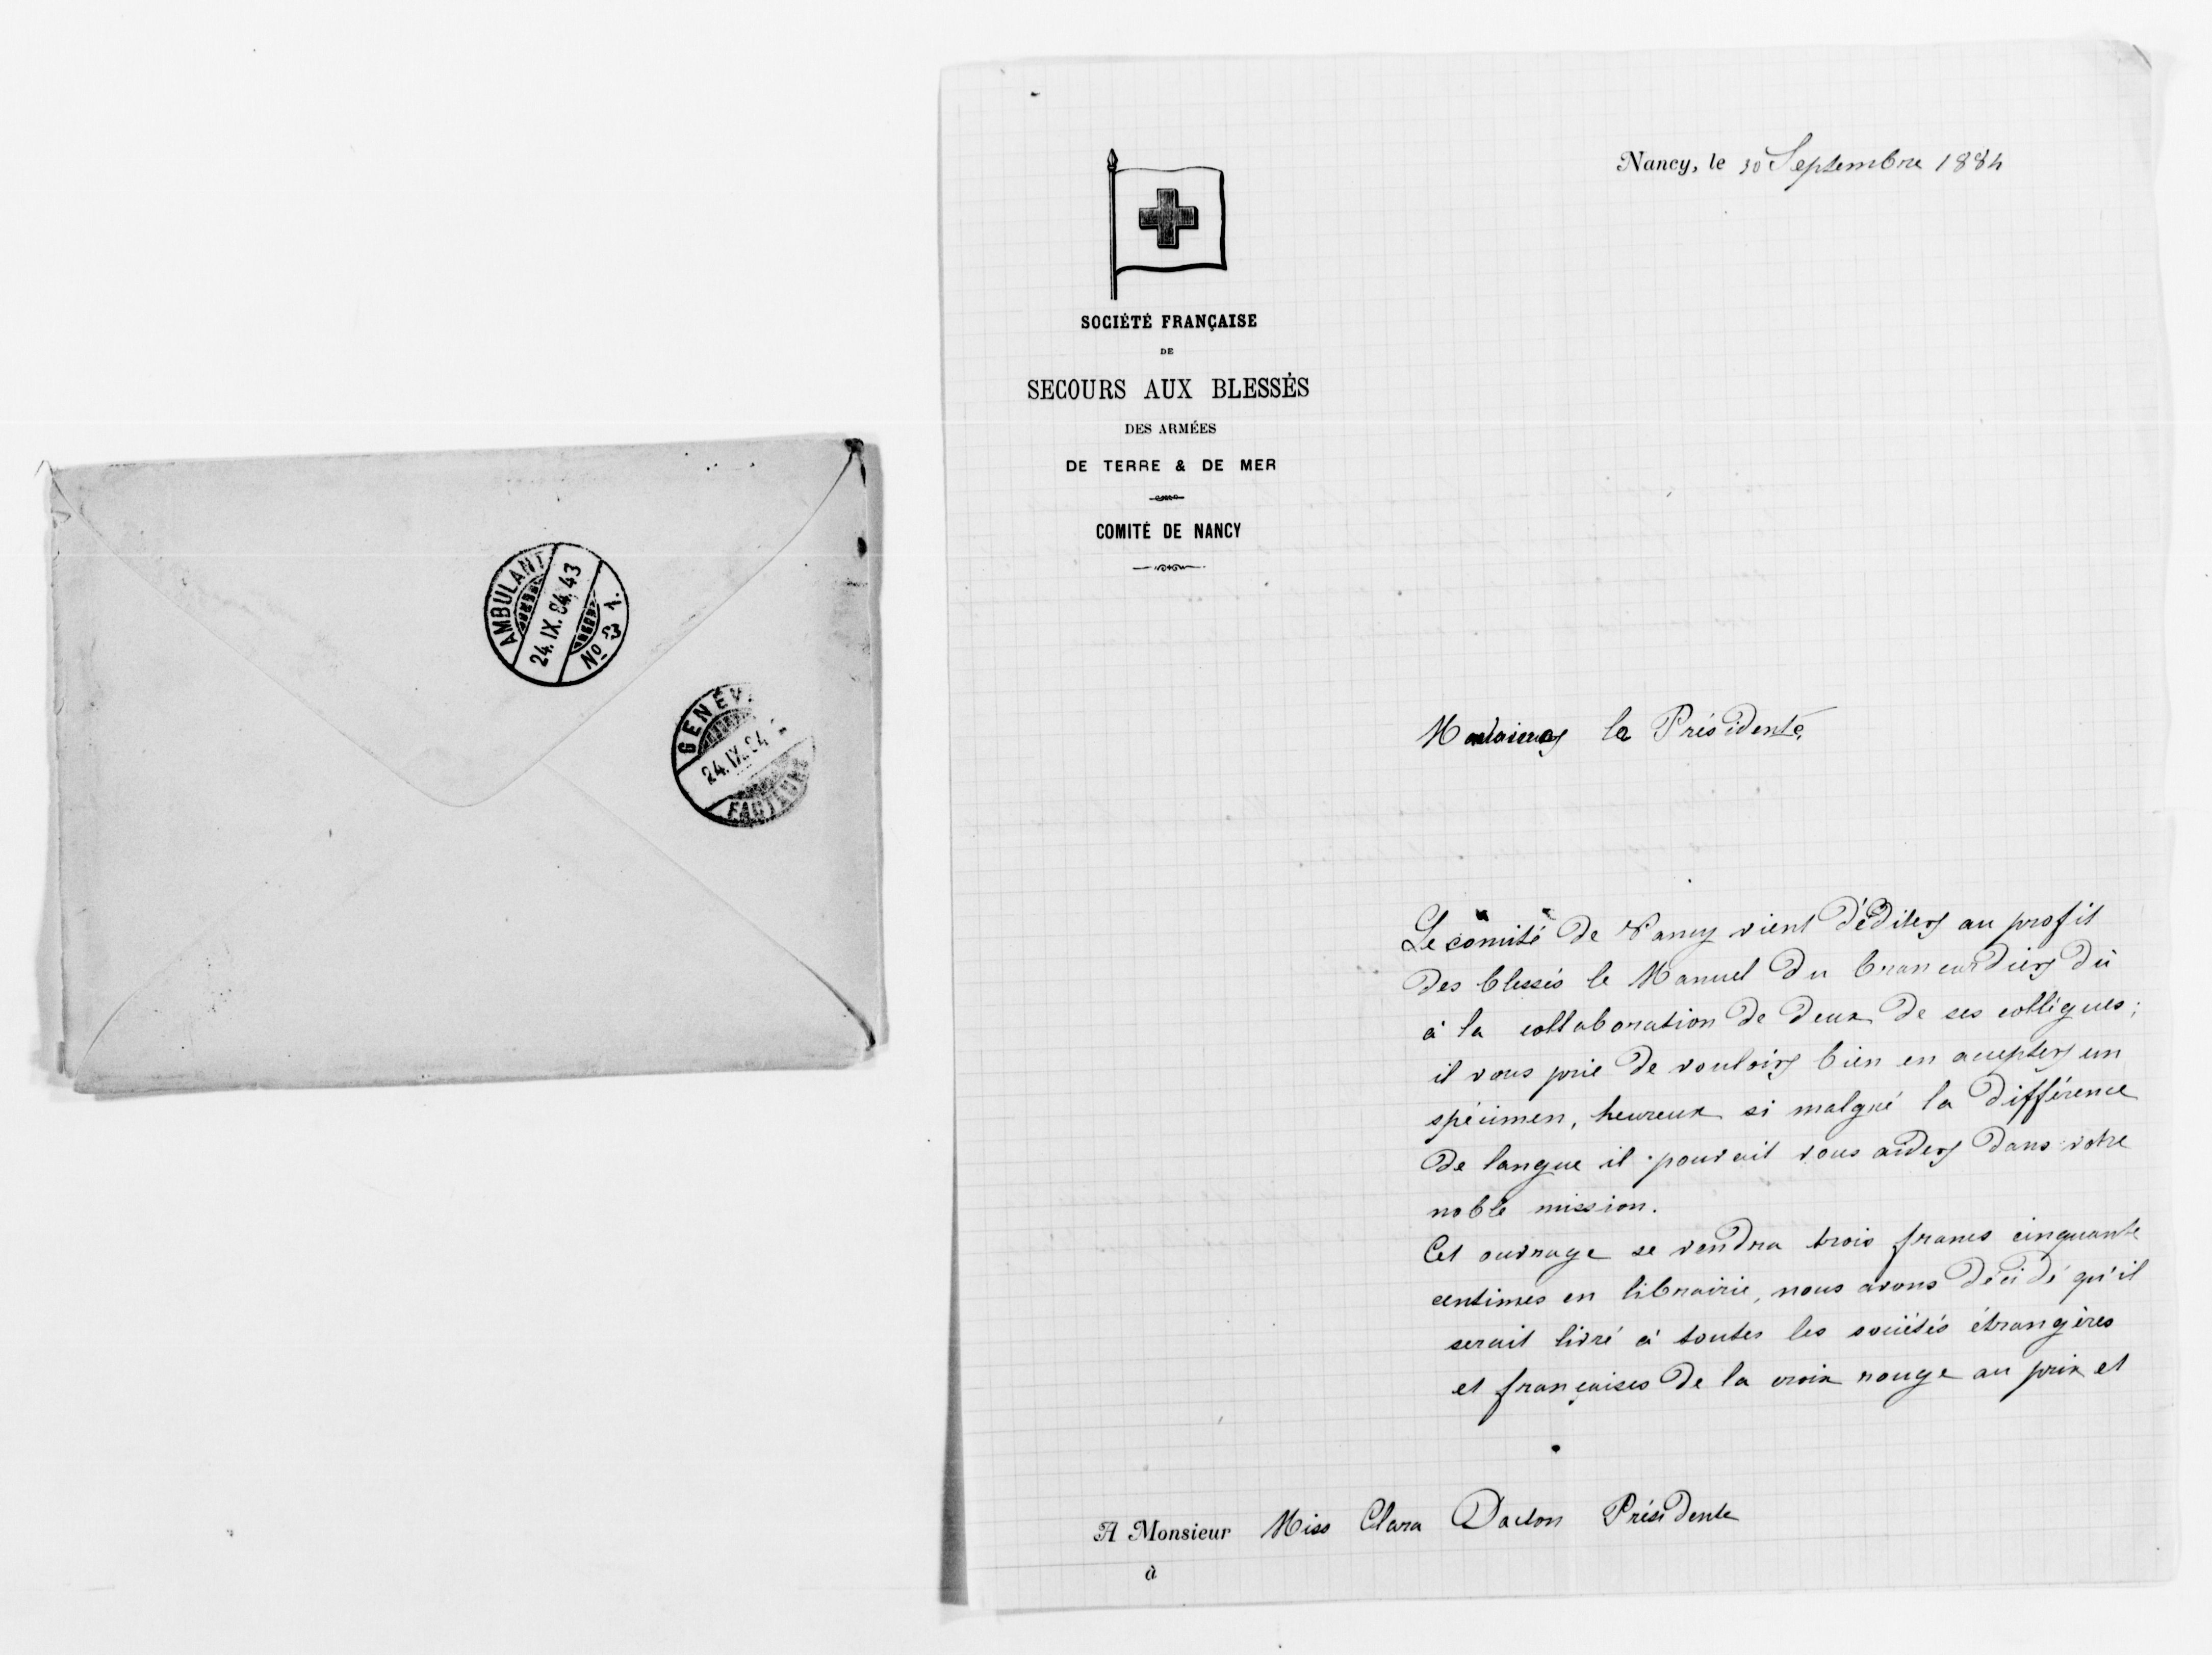 AMBULANT
24.IX.84.43
No 3 1.
GENÈV
24.IX.84
FACTEURS
Nancy, le 30 Septembre 1884
SOCIÉTÉ FRANÇAISE
DE
SECOURS AUX BLESSÉS
DES ARMÉES
DE TERRE & DE MER
COMITÉ DE NANCY
Madame la Présidente,
Le comité de Nancy vient d'éditer au profit
des blessés le Manuel du brancardier dû
à la collaboration de deux de ses collègues;
il vous prie de vouloir bien en accepter un
spécimen, heureux si malgré la différence
de langue il pouvait vous aider dans votre
noble mission.
Cet ouvrage se vendra trois francs cinquante
centimes en librairie, nous avons décidé qu'il
serait livré à toutes les sociétés étrangères
et françaises de la croix rouge au prix et
A Monsieur Miss Clara Barton Présidente
à